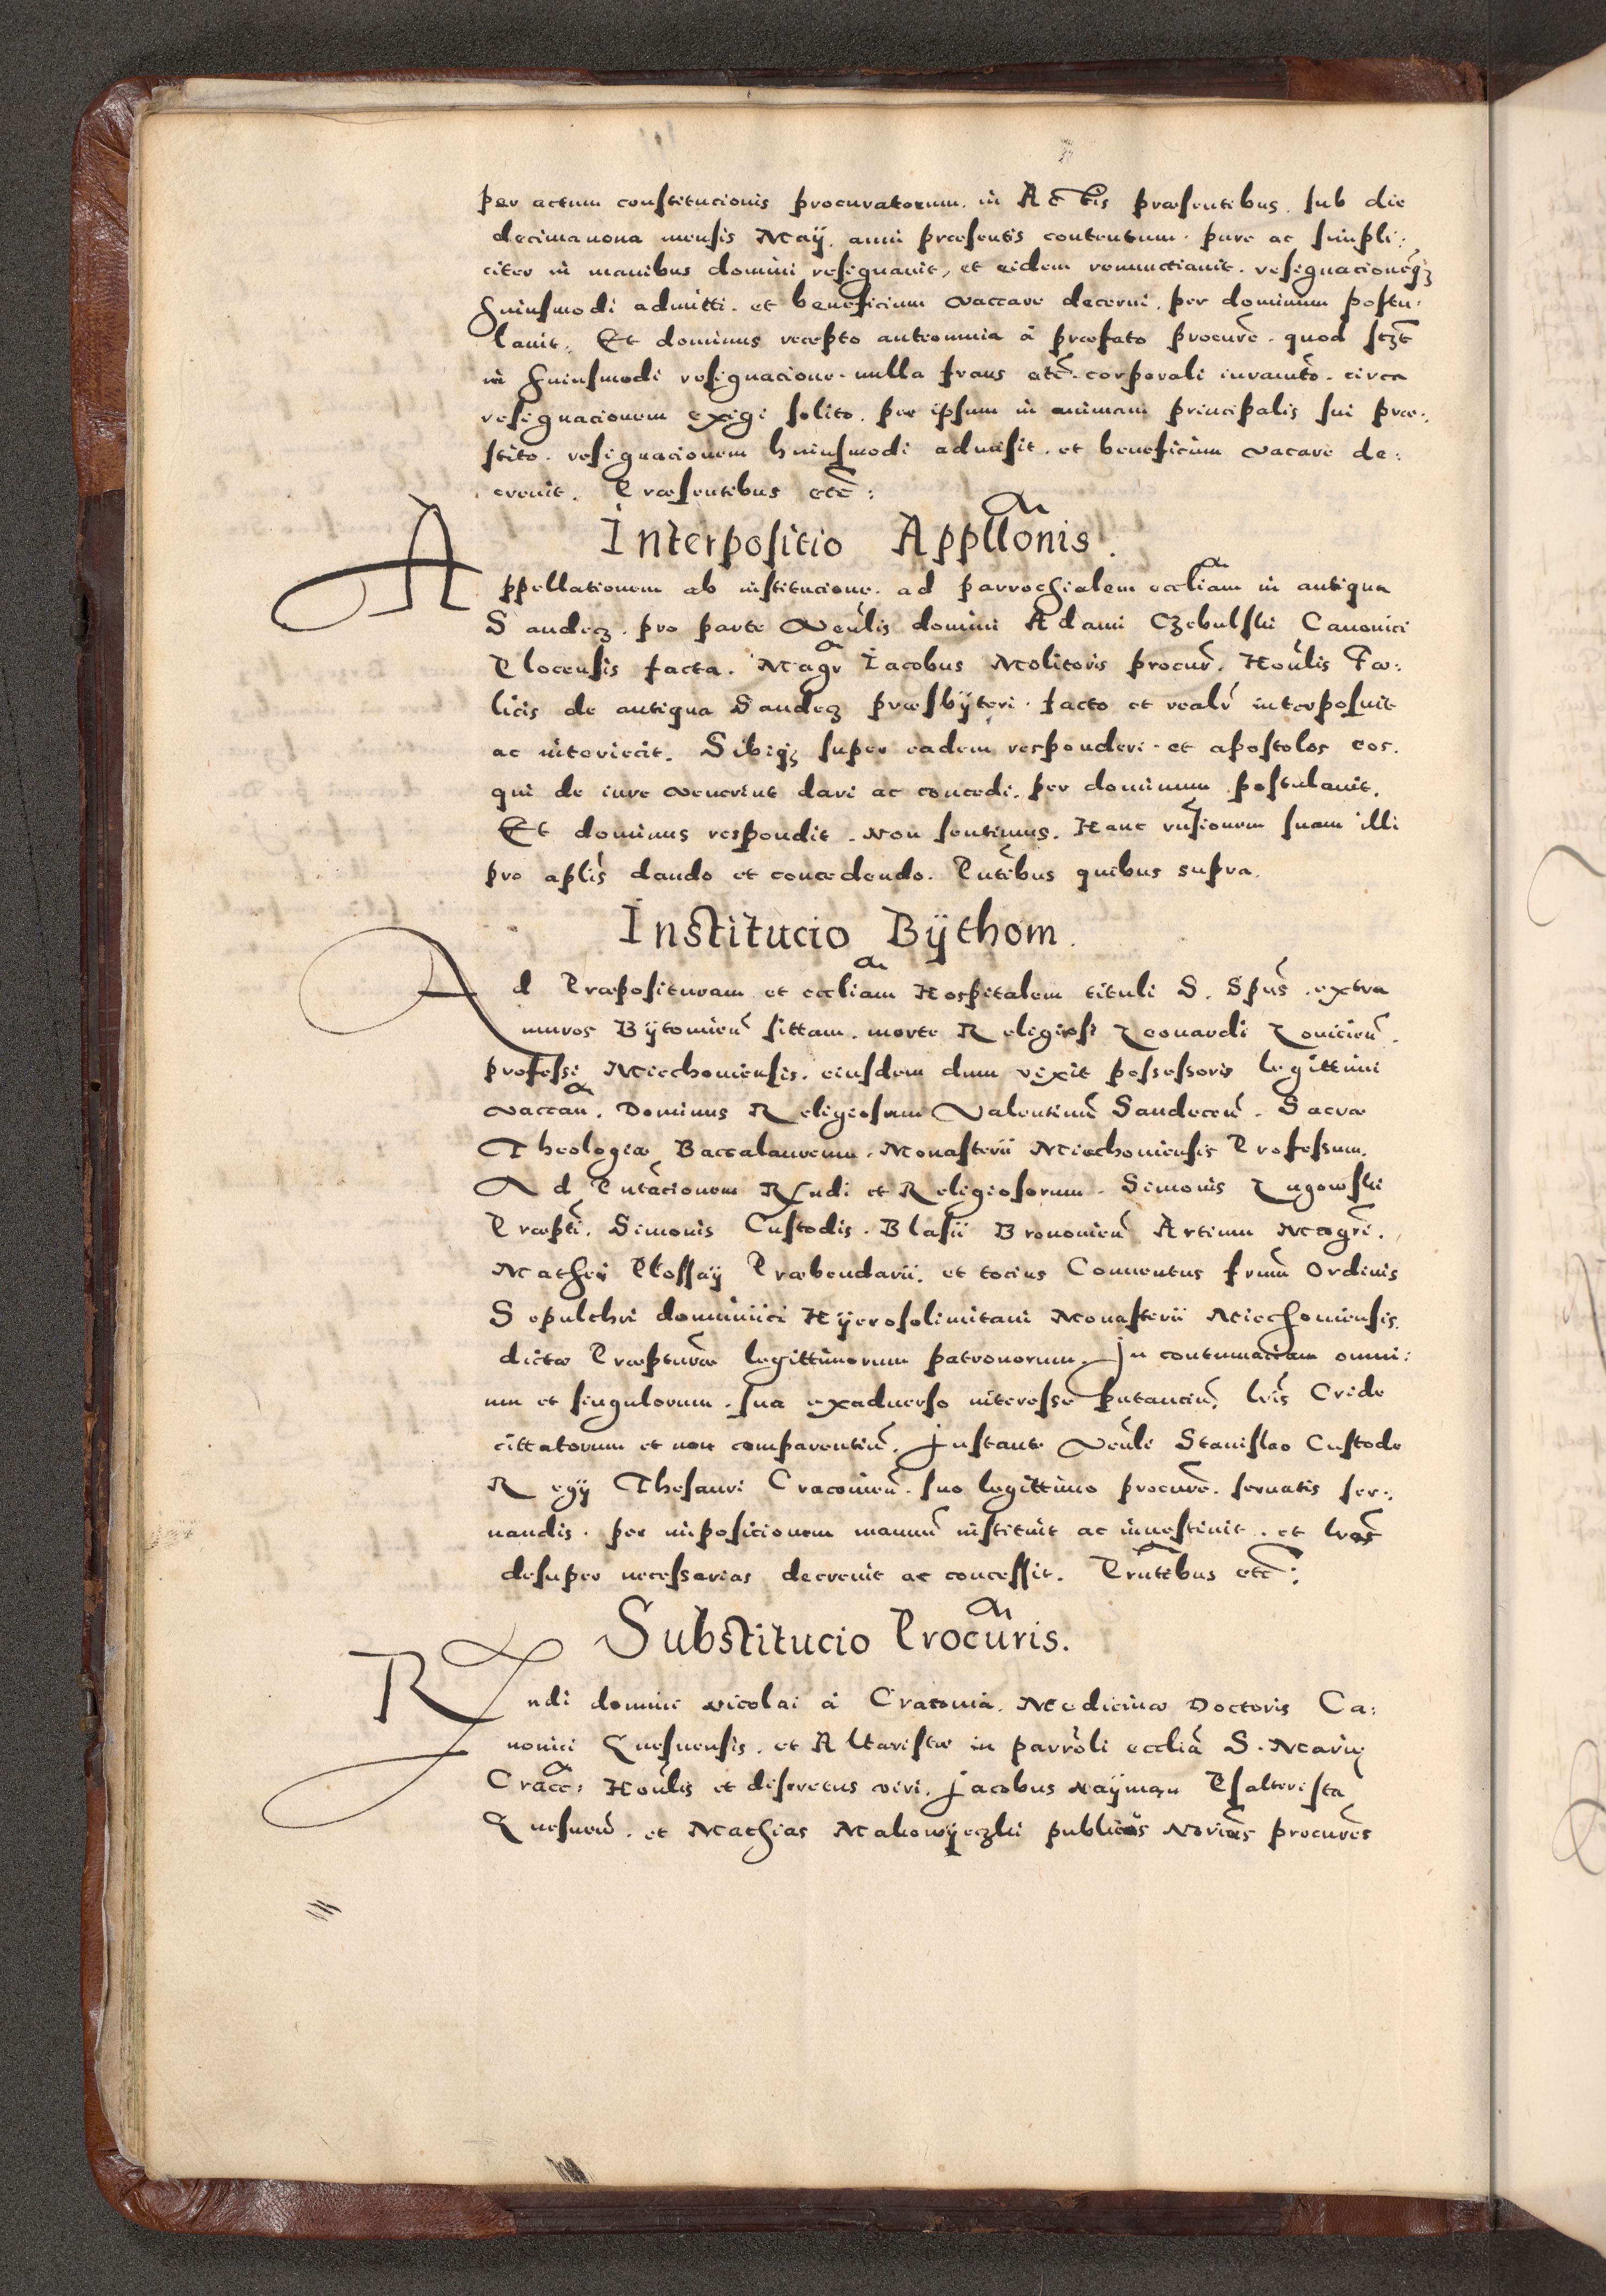 per actum constitucionis procuratorum. in Actis præsentibus. sub die
decimanona mensis Maÿ. anni præsentis contentum. pure ac simpli:
citer in manibus domini resignauit, et eidem renunctiauit. resignacionēqȝ
huiusmodi admitti. et beneficium vaccare decerni. per dominum postu:
lauit. Et dominus recepto anteomnia à præfato procurē. quod sczt
in huiusmodi resignacione. nulla fraus etc̄. corporali iuramto. circa
resignacionem exigi solito. per ipsum in animam principalis sui præ:
stito. resignacionem huiusmodi admisit. et beneficium vacare de:
creuit. Præsentibus etc̄:
Interpositio Appllonis.
Appellationem ab institucione. ad parrochialem eccliam in antiqua
Sandecz. pro parte Veńlis domini Adami Czebulski Canonici
Plocensis facta. Magr Iacobus Molitoris procur̄. Honlis Fæ:
licis de antiqua Sandecz præsbÿteri. facto et realr̄ interposuit
ac interiecit. Sibiqȝ super eadem responderi. et apostolos eos.
qui de iure venerint dari ac concedi. per dominum postulauit.
Et dominus respondit. Non sentimus. Hanc rn̄sionem suam illi
pro aplīs dando et concedendo. Pn̄tibus quibus supra.
Institucio Bÿthom.
Ad Præposituram et eccliam Hospitalem tituli S. Spūs. extra
muros Bÿtomien̄ sittam. morte Religiosi Leonardi Louicien̄.
professi Miechouiensis. eiusdem dum vixit possessoris legittimi
vaccan̄. Dominus Religiosum Valentinū Sandecen̄. Sacræ
Theologiæ Baccalaureum. Monasterii Miechouiensis Professum.
Ad Pn̄tacionem Rn̄di et Religiosorum. Simonis Lugowski
Præpti. Simonis Custodis. Blasii Bronouien̄ Artium Magri.
Mathei Plossaÿ Præbendarii. et tocius Conuentus frum̄ Ordinis
Sepulchri dominiici Hÿerosolimitani Monasterii Miechouiensis.
dictæ Præpturæ legittimorum patronorum. In contumaciam omni:
um et singulorum. sua exaduerso interesse putanciū. lrīs Cride
cittatorum et non comparentiū. Instante Veńli Stanislao Custode
Regÿ Thesauri Cracouien̄. suo legittimo procurē. seruatis ser:
uandis. per imposicionem manuū instituit ac inuestiuit. et lrās
desuper necessarias decreuit ac concessit. Prn̄tibus etc̄:
Substitucio Procuris.
Rndi domini Nicolai à Cracouia. Medicinæ Doctoris Ca:
nonici Gnesnensis. et Altaristæ in parroli ecclia S. Mariæ
Cracc: Honlis et discretus viri. Jacobus Naÿman Psalterista
Gnesnen̄. et Mathias Makowÿeczki publicus Norius procures